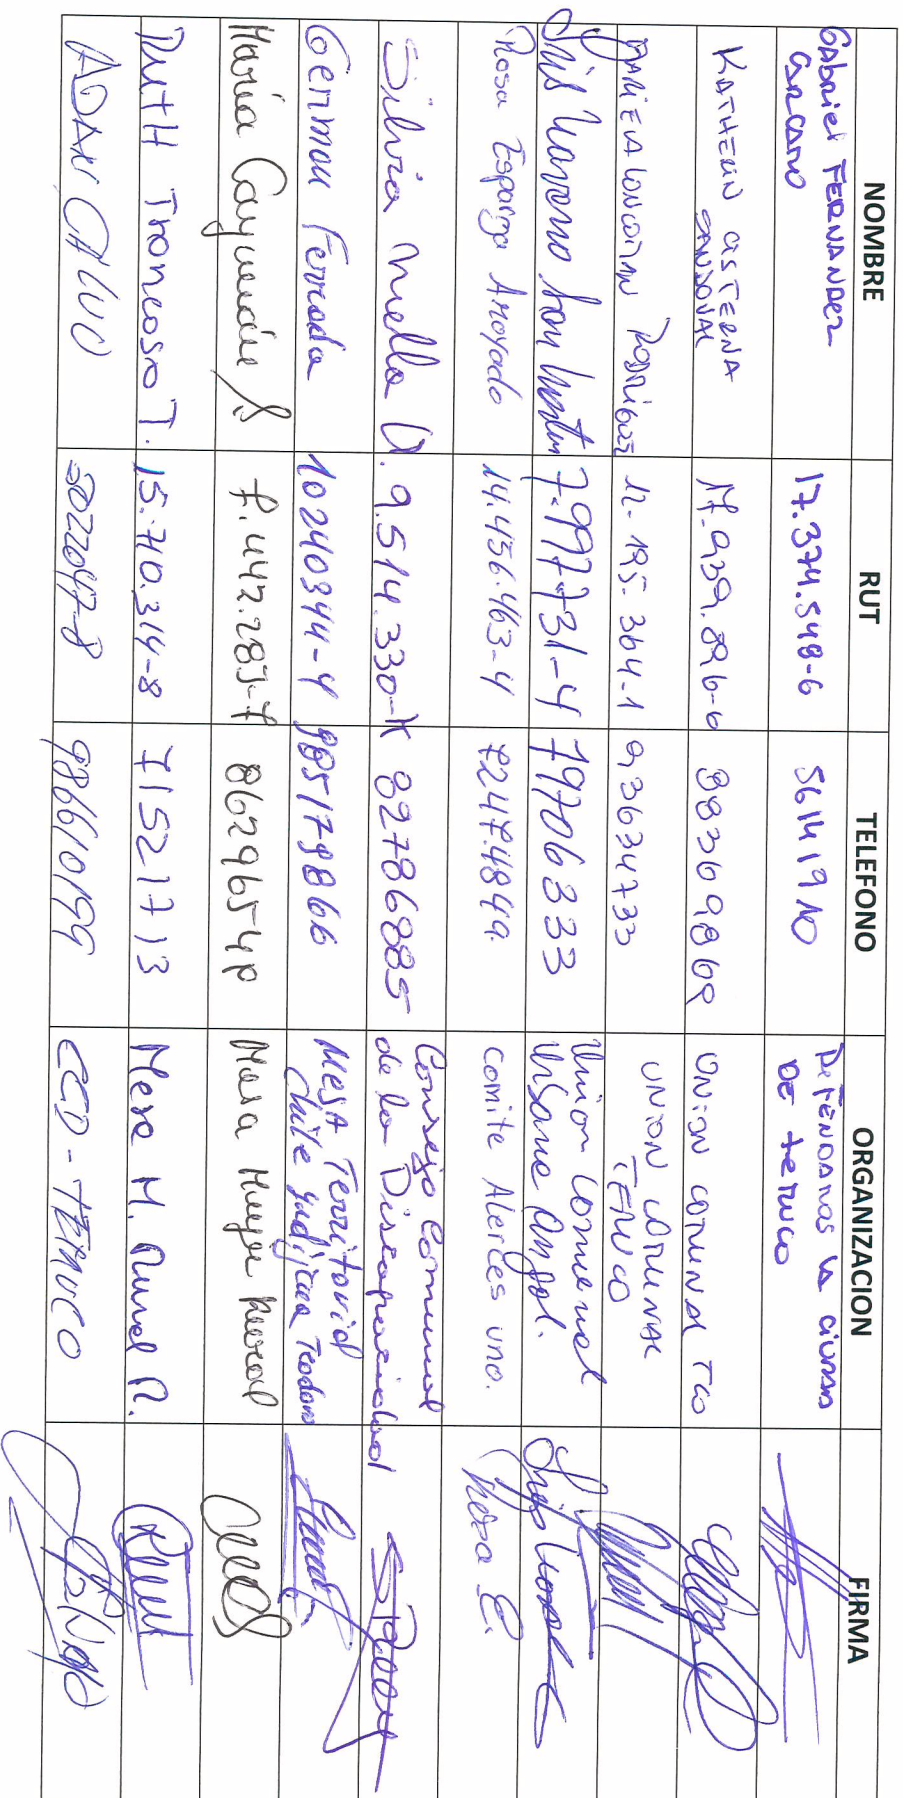 NOMBRE RUT TELEFONO ORGANIZACION FIRMA
Gabriel FERNANDEZ CARCAMO 17.374.548-6 56141910 DEFENDAMOS LA CIUDAD DE temuco
KATHERIN CISTERNA SANDOVAL 17.939.896-6 88369869 UNION COMUNAL TCO
MARIELA LONCOMAN RODRIGUEZ 12.195.364-1 93634733 UNION COMUNAL TEMUCO
Luis Navarro San Martin 7.997.731-4 79706333 Union Comunal Urbana Angol.
Rosa Esparza Amoyado 14.456.463-4 72474849. Comite Alerces uno. Rosa E.
Silvia Mella U. 9.514.330-K 82786885 Consejo Comunal de la Discapacidad
German Ferrada 10240344-4 985179866 MESA Territorial Chile Indijena Teodoro
Maria Cayunao S 7.442.283-7 86296540 Mesa Mujer Rural
RUTH Troncoso T. 15.710.314-8 71521713 Mesa M. Rural R.
ADAN CALVO 3022047-8 98661099 CCD-TEMUCO